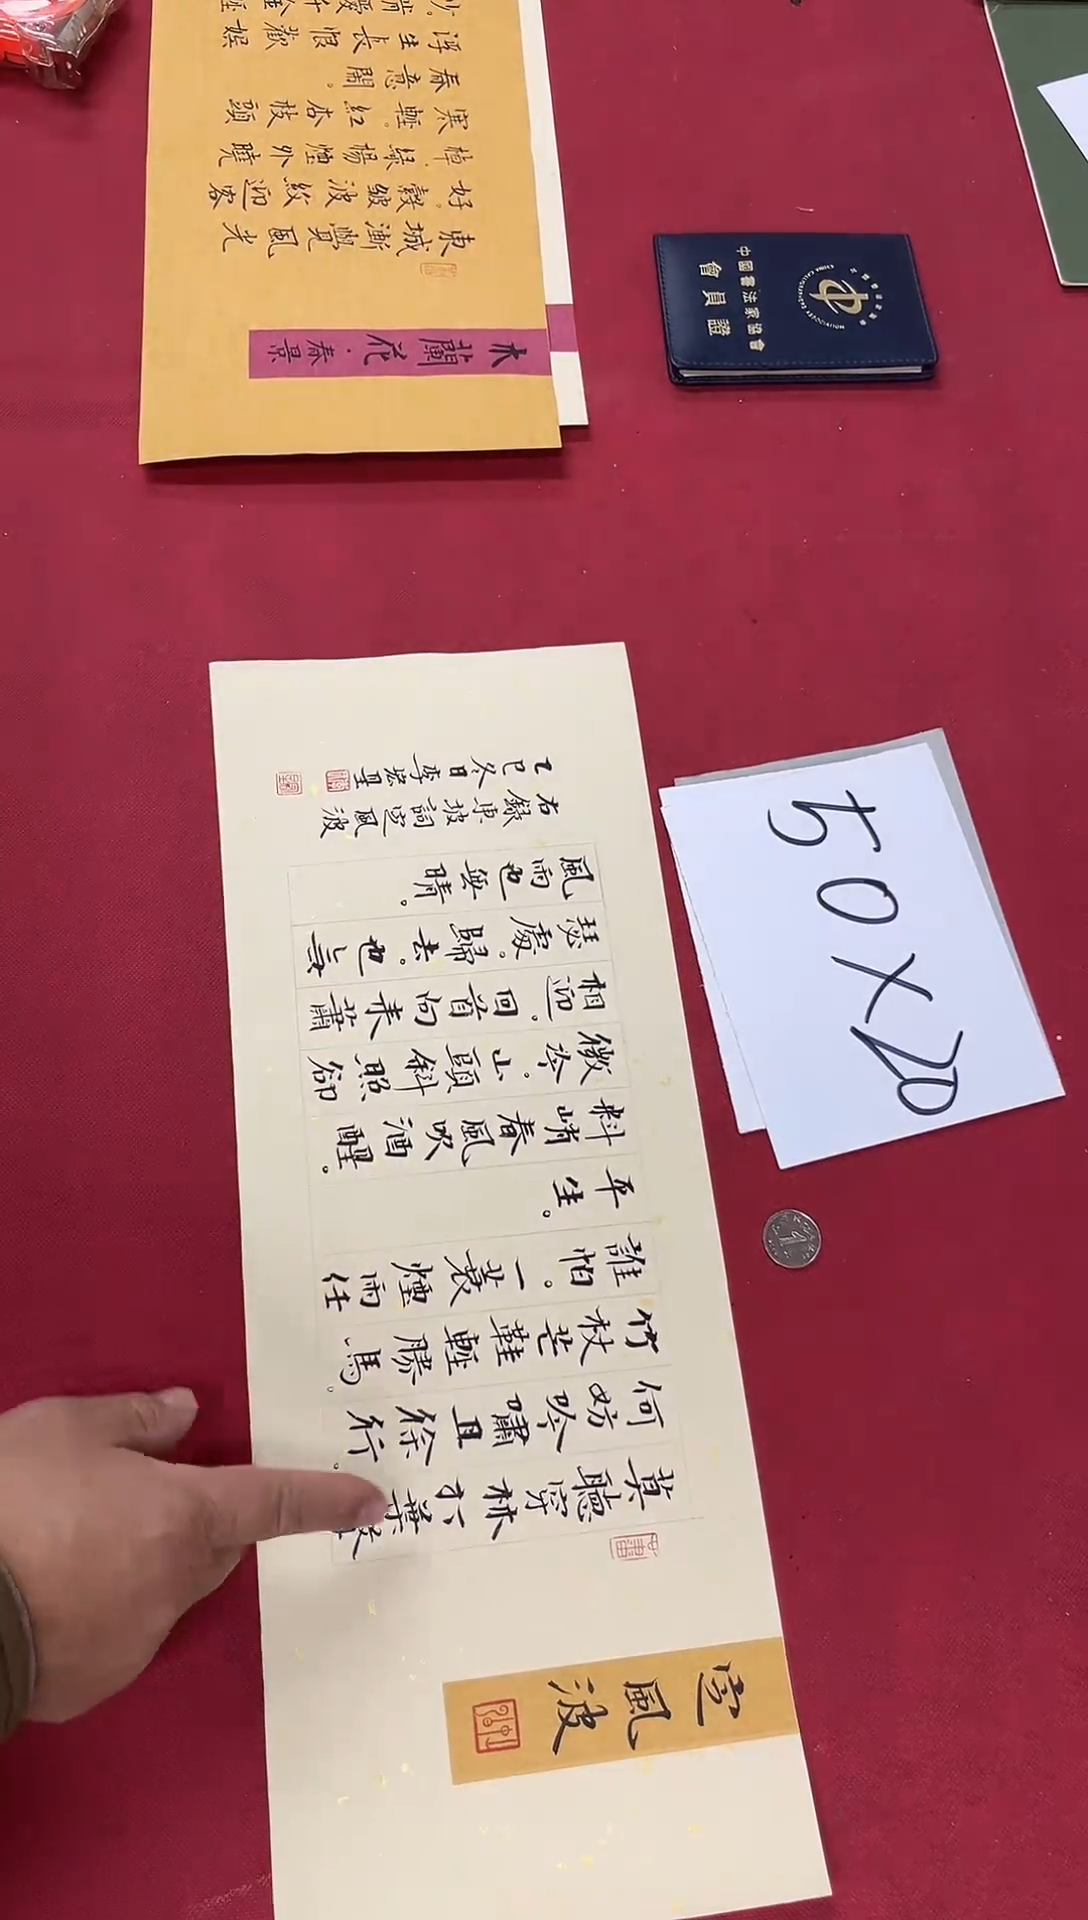 木蘭花·春景
東城漸覺風光
好。縠皺波紋迎客
棹。綠楊煙外曉
寒輕。紅杏枝頭
春意鬧。
浮生長恨歡娛
少。肯愛千金
中國書法家協會
會員證
CHINA CALLIGRAPHERS ASSOCIATION
50X20
1
定風波
莫聽穿林打葉
何妨吟嘯且徐行。
竹杖芒鞋輕勝馬。
誰怕。一蓑煙雨任
平生。
料峭春風吹酒醒。
微冷。山頭斜照卻
相迎。回首向來蕭
瑟處。歸去。也無
風雨也無晴。
右錄東坡詞定風波
乙巳冬日李宏